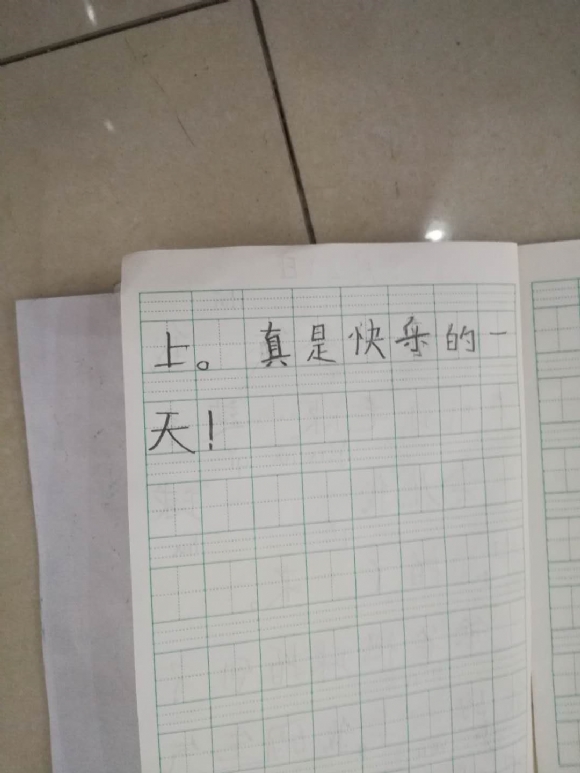 上。真是快乐的一
天！